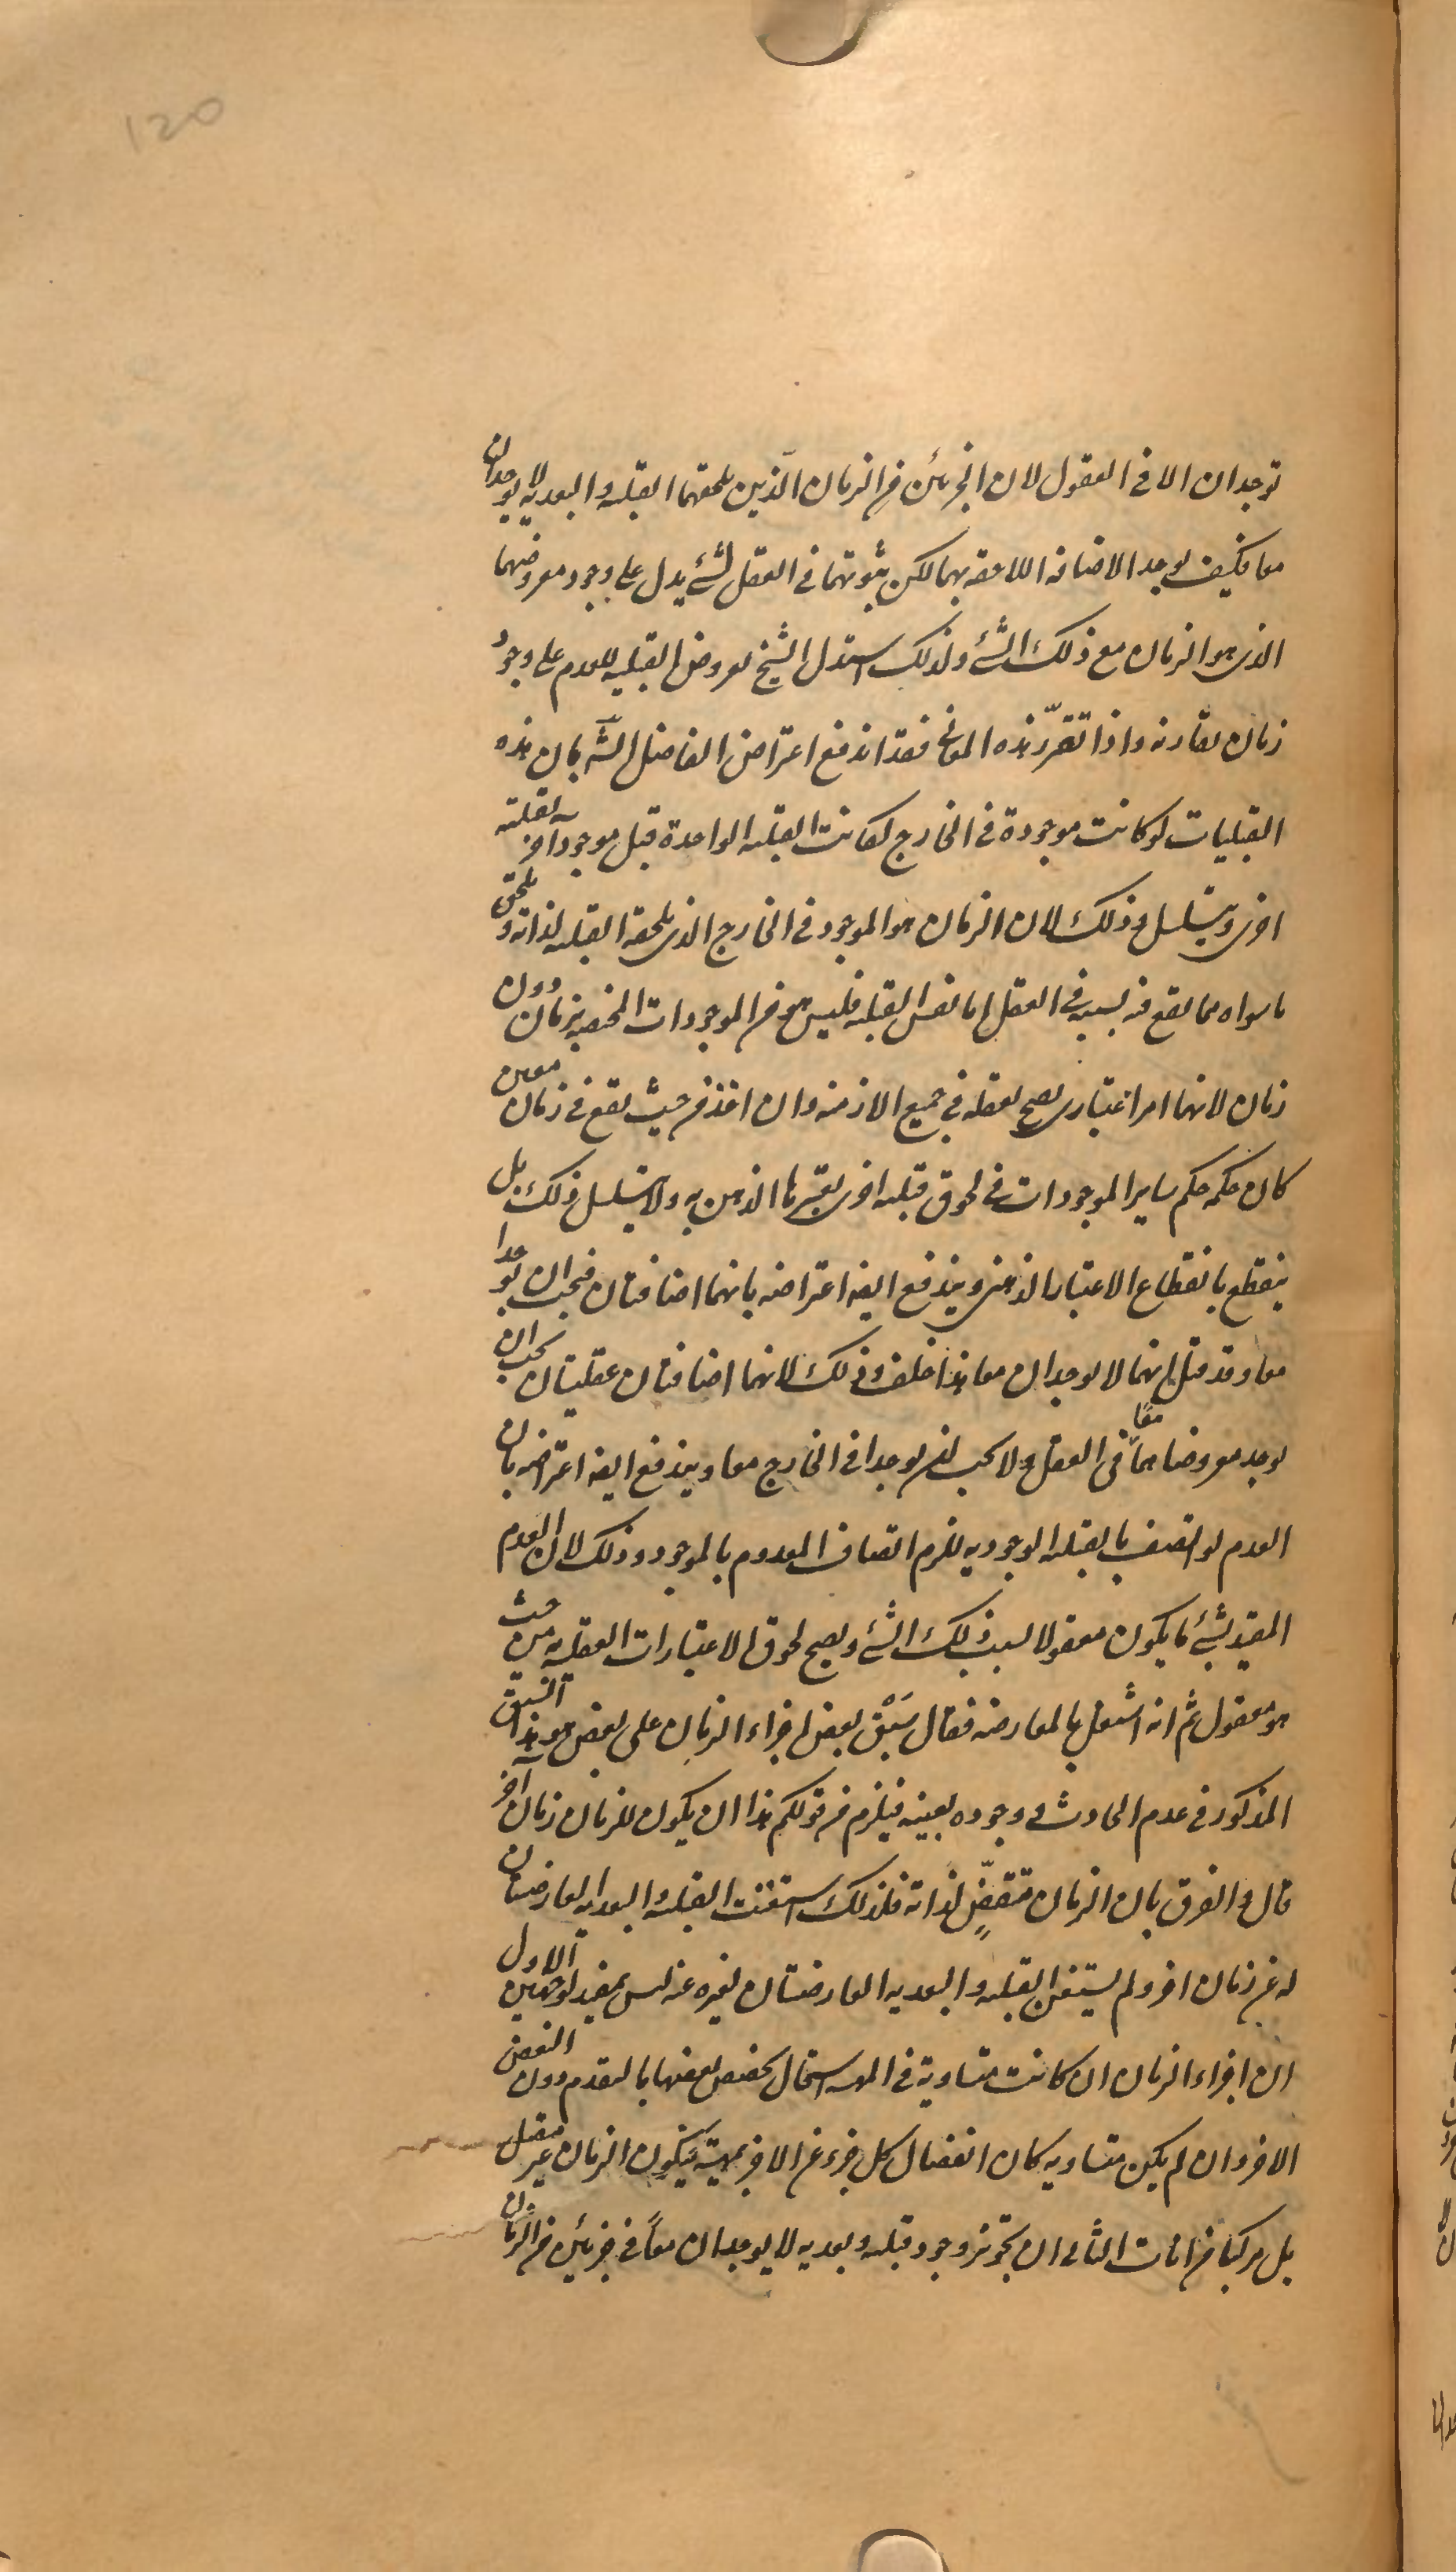 120
توجدان الا فى العقول لان الجزئين من الزمان الذين يلحقهما القبلية و البعدية لا يوجدان
معا فكيف يوجد الاضافة اللاحقة بهما لكن ثبوتهما فى العقل لشئ يدل على وجود معروضهما
الذى هو الزمان مع ذلك الشئ ولذلك استدل الشيخ بعروض القبلية للعدم على وجود
زمان يقارنه واذا تقرّر هذه المعانى فقد اندفع اعتراض الفاضل الشه بان هذه
القبليات لو كانت موجودة فى الخارج لكانت القبلية الواحدة قبل موجود آخر بقبلية
اخرى ويتسلسل وذلك لان الزمان هو الموجود فى الخارج الذى يلحقه القبلية لذاته و يلحق
ما سواه مما يقع فيه بسببه فى العقل اما نفس القبلية فليس هو من الموجودات المختصة بزمان دون
زمان لانها امر اعتبارى يصح تعقله فى جميع الازمنة وان اخذ من حيث يقع فى زمان معين
كان حكمه حكم ساير الموجودات فى لحوق قبلية اخرى يعتبرها الذهن به ولا يتسلسل ذلك بل
ينقطع بانقطاع الاعتبار الذهنى ويندفع ايضا اعتراضه بانهما اضافتان فيجب ان يوجدا
معا وقد قيل انهما لا يوجدان معا هذا خلف وذلك لانهما اضافتان عقليتان يجب ان
يوجد معروضاهما معًا فى العقل ولا يجب ان يوجدا فى الخارج معا ويندفع ايضا اعتراضه بان
العدم لو اتصف بالقبلية الوجودية يلزم اتصاف المعدوم بالموجود وذلك لان العدم
المقيد بشئ ما يكون معقولا بسبب ذلك الشئ ويصح لحوق الاعتبارات العقلية به من حيث
هو معقول ثم انه اشتغل بالمعارضة فقال سَبْق بعض اجزاء الزمان على بعض هو هذا السبق
المذكور فى عدم الحادث و وجوده بعينه فيلزم من قولكم هذا ان يكون للزمان زمان آخر
قال و الفرق بان الزمان متقضٍّ لذاته فلذلك استغنت القبلية و البعدية العارضتان
له عن زمان اخر ولم يستغن القبلية و البعدية العارضتان لغيره عنه ليس بمفيد لوجهين الاول
ان اجزاء الزمان ان كانت متساوية فى المهية استحال تخصص بعضها بالتقدم دون البعض
الاخر وان لم يكن متساوية كان انفصال كل جزء عن الاخر بمهيته فيكون الزمان غير متصل
بل مركبا من انات الثانى ان تجويز وجود قبلية وبعدية لا يوجدان معاً فى جزئين من الزمان